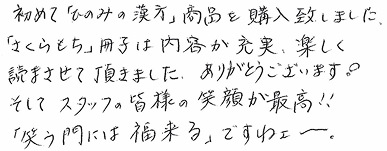 初めて「ひのみの漢方」商品を購入致しました、
「さくらもち」冊子は内容が充実、楽しく
読まさせて頂きました、ありがとうございます。
そして スタッフの皆様の笑顔が最高!!
「笑う門には福来る」ですねェー。